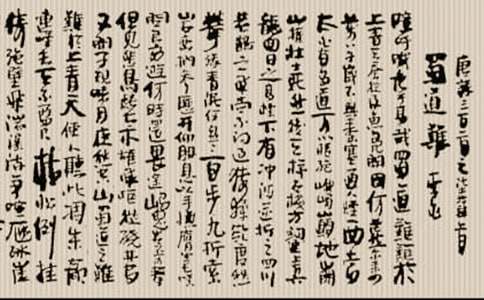 唐詩三百首之
蜀道難 李白
噫吁嚱危乎高哉蜀道難難於
上青天蚕丛及魚凫開國何茫然尔来
八千歲不與秦塞通人煙西當
太白有鸟道可以横绝峨嵋巅地崩
山摧壮士死然後天梯石栈方钩連上有
龍回日之高標下有冲波逆折之回川
黄鶴之飛尚不得过猿猱欲度愁
攀缘青泥何盤盤百步九折萦
岩峦捫天参歷井仰脅息以手撫膺坐長嘆
問君西遊何時還畏途巉岩不可攀
但見悲鳥號古木雄飛雌從繞林間
又聞子規啼夜月愁空山蜀道之難
難於上青天使人聽此凋朱顏
連峰去天不盈尺枯松倒挂
倚絶壁飛湍瀑流爭喧豗砯崖